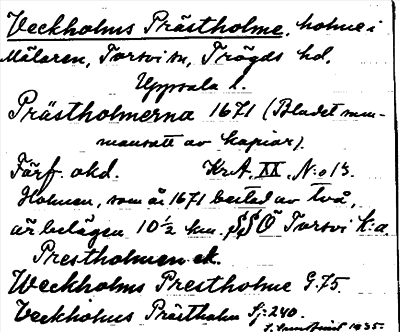 Veckholms Prästholme, holme i
Mälaren, Torsvi sn, Trögds hd,
Uppsala l.
Prästholmerna 1671 (Bladet sam-
mansatt av kapior).
Förf. okd. KrA. XX, N:o 13.
Holmen, som är 1671 bestod av två,
är belägen 10½ km. SSÖ Torsvi k:a.
Prestholmen ek.
Weckholms Prestholme G.75.
Veckholms Prästholm Sj:240.
1935